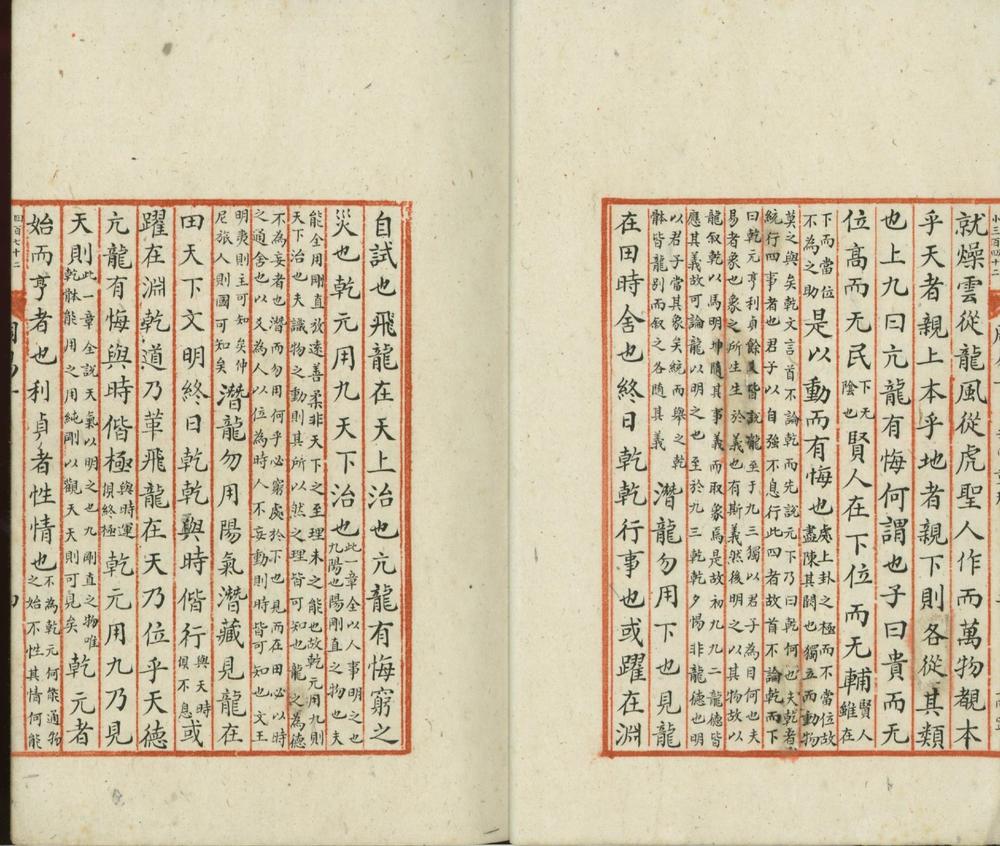 小三百四十二
就燥雲從龍風從虎聖人作而萬物覩本
乎天者親上本乎地者親下則各從其類
也上九曰亢龍有悔何謂也子曰貴而无
位髙而无民下无陰也賢人在下位而无輔賢人雖在
下而當位不為之助是以動而有悔也處上卦之極而不當位故盡陳其闕也獨立而動物
莫之與矣乾文言首不論乾而先說元下乃曰乾何也夫乾者
統行四事者也君子以自強不息行此四者故首不論乾而下
曰乾元亨利貞餘爻皆說龍至于九三獨以君子為目何也夫
易者象也象之所生生於義也有斯義然後明之以其物故以
龍叙乾以馬明坤隨其事義而取象焉是故初九九二龍德皆
應其義故可論龍以明之也至於九三乾乾夕惕非龍德也明
以君子當其象矣統而舉之乾骵皆龍別而叙之各隨其義潛龍勿用下也見龍
在田時舍也終日乾乾行事也或躍在淵
自試也飛龍在天上治也亢龍有悔窮之
災也乾元用九天下治也此一章全以人事明之也九陽也陽剛直之物也夫
能全用剛直放遠善柔非天下之至理未之能也故乾元用九則
天下治也夫識物之動則其所以然之理皆可知也龍之為德
不為妄者也潛而勿用何乎必窮處於下也見而在田必以時
之通舍也以爻為人以位為時人不妄動則時皆可知也文王
明夷則主可知矣仲尼旅人則國可知矣潛龍勿用陽氣潛藏見龍在
田天下文明終日乾乾與時偕行與天時俱不息或
躍在淵乾道乃革飛龍在天乃位乎天德
亢龍有悔與時偕極與時運俱終極乾元用九乃見
天則此一章全說天氣以明之也九剛直之物唯乾骵能用之用純剛以觀天天則可見矣乾元者
始而亨者也利貞者性情也不為乾元何能通物之始不性其情何能
四百七十二